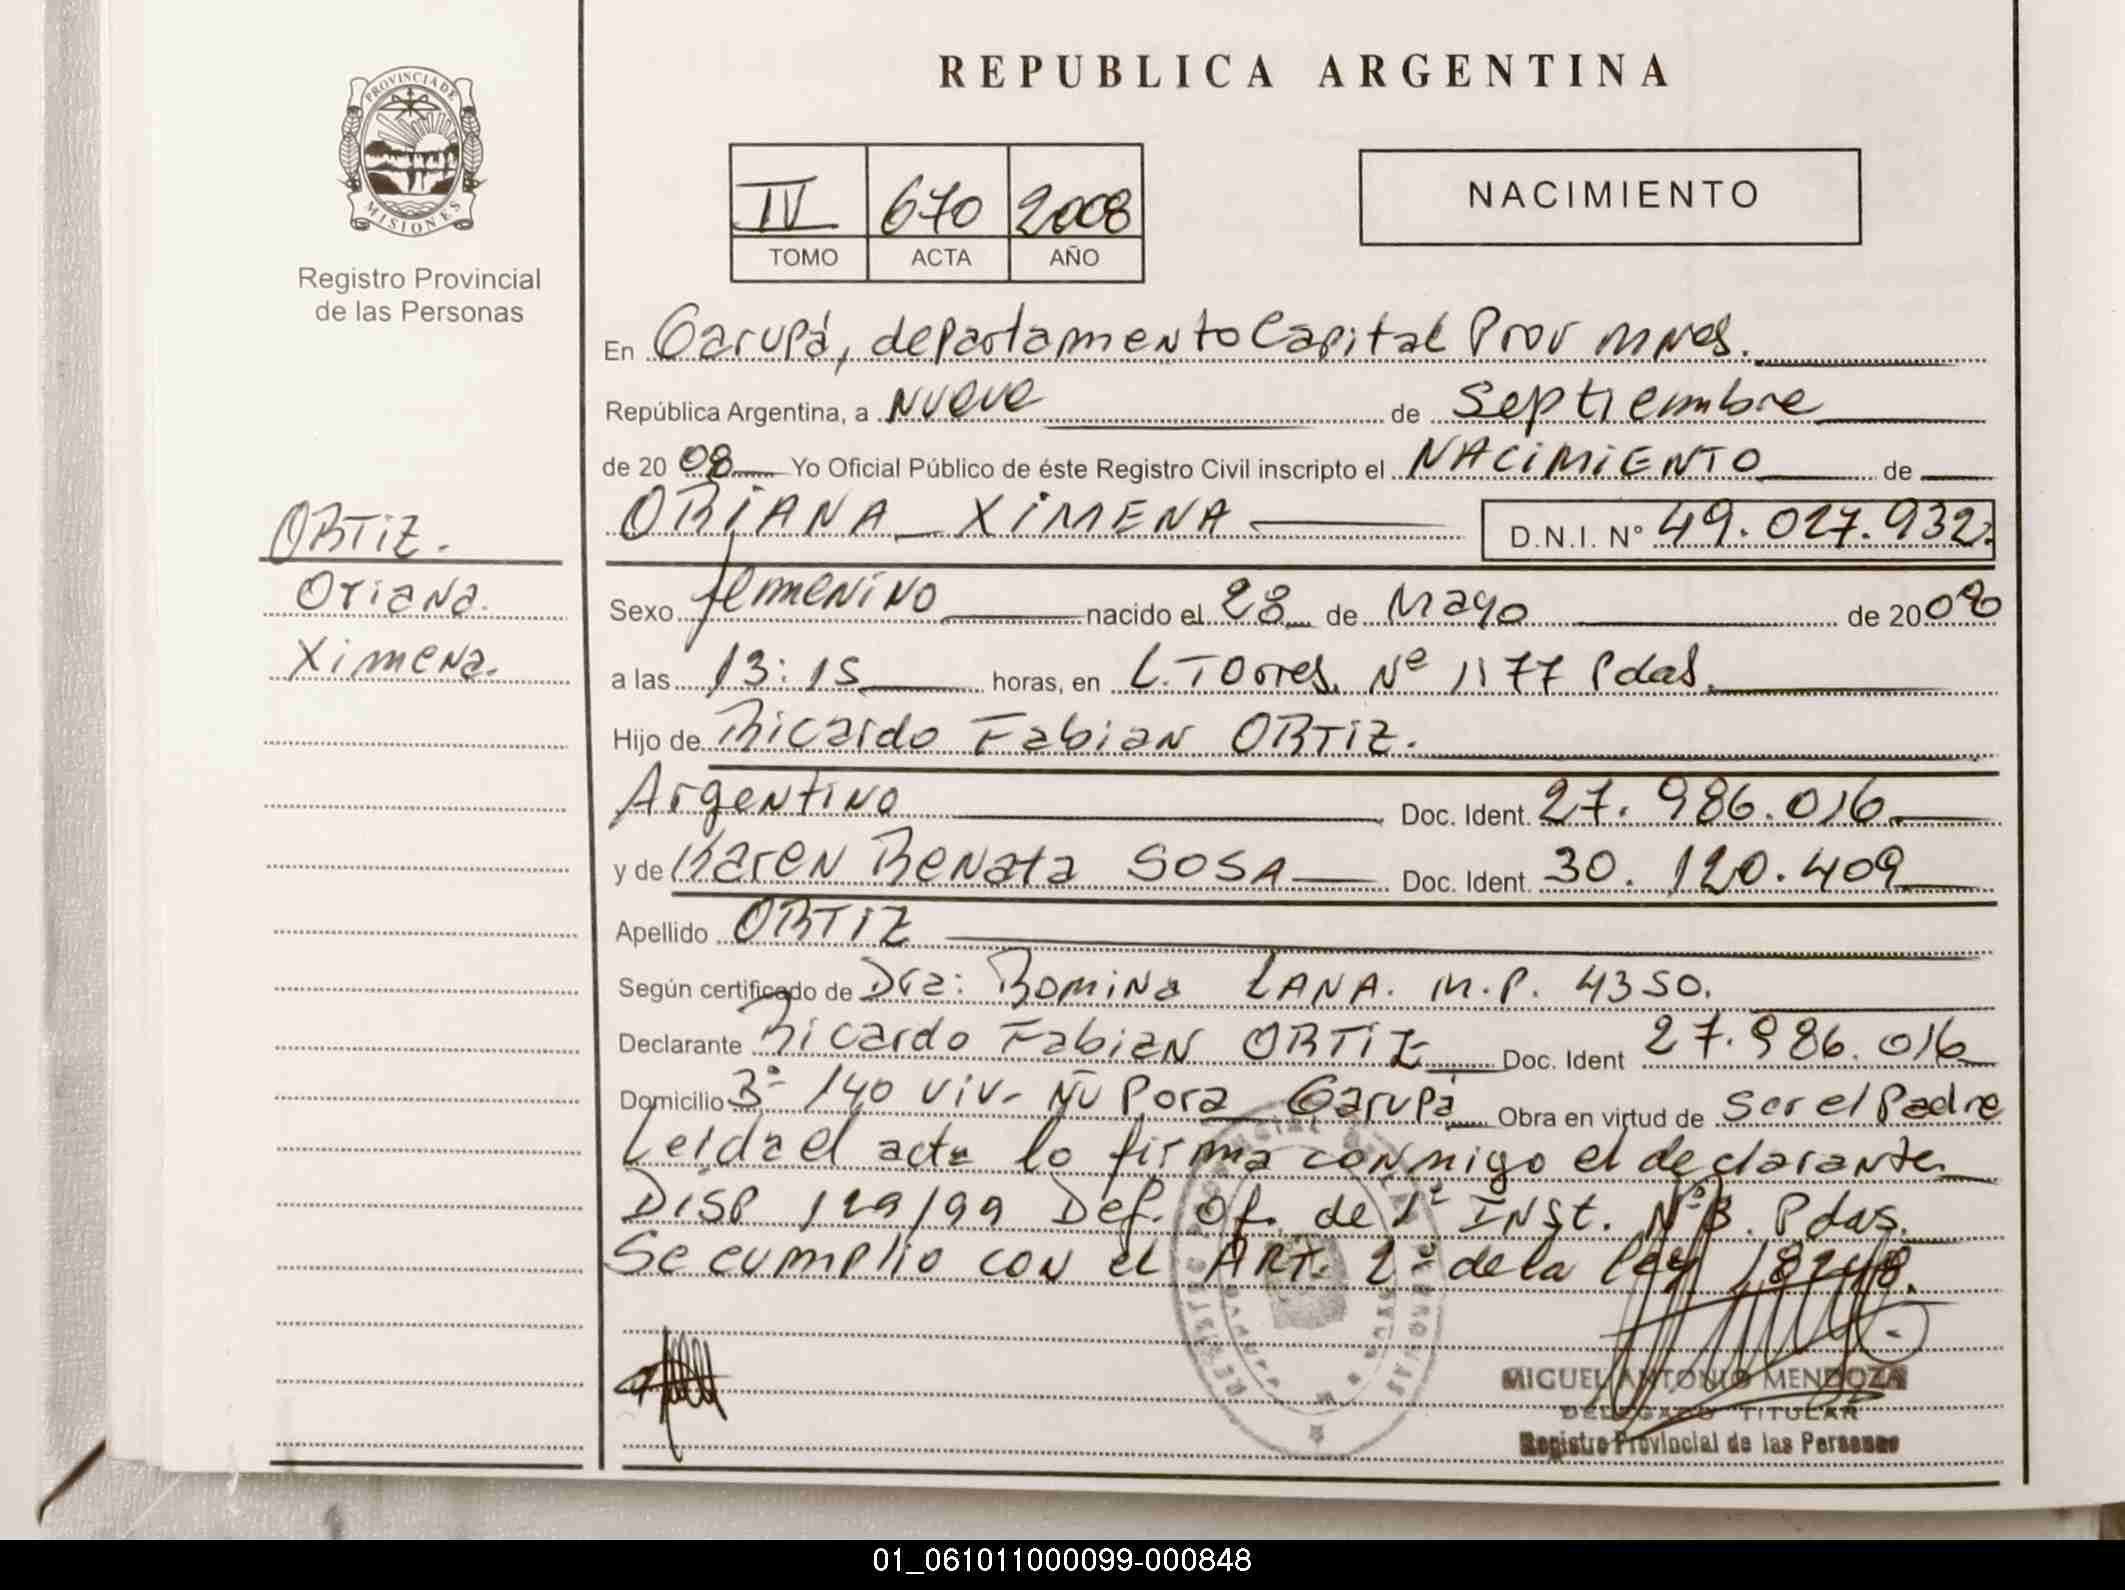 REPUBLICA ARGENTINA
PROVINCIA DE MISIONES
Registro Provincial
de las Personas
IV 670 2008
TOMO ACTA AÑO
NACIMIENTO
En Garupá, departamento Capital Prov Mnes.
República Argentina, a Nueve de Septiembre
de 2008 Yo Oficial Público de éste Registro Civil inscripto el NACIMIENTO de
ORTIZ.
Oriana
Ximena.
ORIANA XIMENA D.N.I. N° 49.027.932.
Sexo femenino nacido el 28 de Mayo de 2008
a las 13:15 horas, en L. Torres Nº 1177 Pdas.
Hijo de Ricardo Fabian ORTIZ.
Argentino Doc. Ident. 27.986.016
y de Karen Renata SOSA Doc. Ident. 30.120.409
Apellido ORTIZ
Según certificado de Dra: Romina LANA. M.P. 4350.
Declarante Ricardo Fabian ORTIZ Doc. Ident 27.986.016
Domicilio Bº 140 viv- Ñu Pora Garupá Obra en virtud de Ser el Padre
Leida el acta lo firma conmigo el declarante
DISP 129/99 Def. Of. de 1º INST. Nº3. Pdas.
Se cumplio con el ART. 2º de la ley 18248.
MIGUEL ANTONIO MENDOZA
DELEGADO TITULAR
Registro Provincial de las Personas
01_061011000099-000848